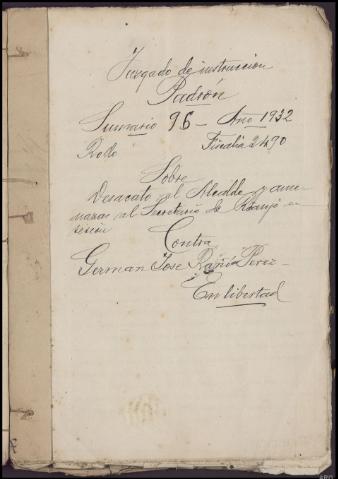 Juzgado de instrucción
Padrón
Sumario 96 - Año 1932
Rollo Fiscalía 2490
Sobre
Desacato al Alcalde y ame-
nazas al Secretario de Rianjo en
sesión
Contra
German José Pérez -
En libertad